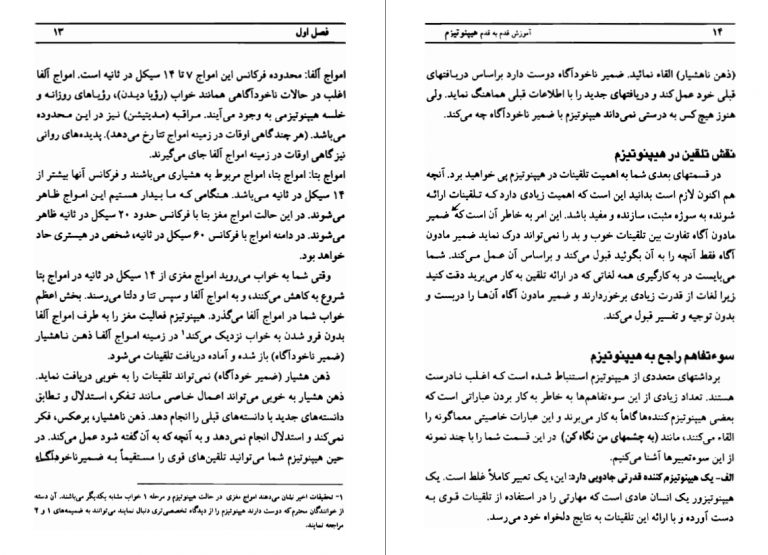 فصل اول ۱۳
امواج آلفا: محدوده فرکانس این امواج ۷ تا ۱۴ سیکل در ثانیه است. امواج آلفا
اغلب در حالات ناخودآگاهی همانند خواب (رؤیا دیدن)، رؤیاهای روزانه و
خلسه هیپنوتیزمی به وجود می‌آیند. مراقبه (مدیتیشن) نیز در این محدوده
می‌باشد. (هر چندگاهی اوقات در زمینه امواج تتا رخ می‌دهد). پدیده‌های روانی
نیز گاهی اوقات در زمینه امواج آلفا جای می‌گیرند.
امواج بتا: امواج بتا، امواج مربوط به هشیاری می‌باشند و فرکانس آنها بیشتر از
۱۴ سیکل در ثانیه می‌باشد. هنگامی که ما بیدار هستیم این امواج ظاهر
می‌شوند. در این حالت امواج مغز بتا با فرکانس حدود ۲۰ سیکل در ثانیه ظاهر
می‌شوند. در دامنه امواج با فرکانس ۶۰ سیکل در ثانیه، شخص در هیستری حاد
خواهد بود.
وقتی شما به خواب می‌روید امواج مغزی از ۱۴ سیکل در ثانیه در امواج بتا
شروع به کاهش می‌کنند، و به امواج آلفا و سپس تتا و دلتا می‌رسند. بخش اعظم
خواب شما در امواج آلفا می‌گذرد. هیپنوتیزم فعالیت مغز را به طرف امواج آلفا
بدون فرو شدن به خواب نزدیک می‌کند۱ در زمینه امواج آلفا ذهن ناهشیار
(ضمیر ناخودآگاه) باز شده و آماده دریافت تلقینات می‌شود.
ذهن هشیار (ضمیر خودآگاه) نمی‌تواند تلقینات را به خوبی دریافت نماید.
ذهن هشیار به خوبی می‌تواند اعمال خاصی مانند تفکر، استدلال و تطابق
دانسته‌های جدید با دانسته‌های قبلی را انجام دهد. ذهن ناهشیار، برعکس، فکر
نمی‌کند و استدلال انجام نمی‌دهد و به آنچه که به آن گفته شود عمل می‌کند. در
حین هیپنوتیزم شما می‌توانید تلقین‌های قوی را مستقیماً به ضمیرناخودآگاه
۱- تحقیقات اخیر نشان می‌دهند امواج مغزی در حالت هیپنوتیزم و مرحله ۱ خواب مشابه یکدیگر می‌باشند. آن دسته
از خوانندگان محترم که دوست دارند هیپنوتیزم را از دیدگاه تخصصی‌تری دنبال نمایند می‌توانند به ضمیمه‌های ۱ و ۲
مراجعه نمایند.
۱۴ آموزش قدم به قدم هیپنوتیزم
(ذهن ناهشیار) القاء نمائید. ضمیر ناخودآگاه دوست دارد براساس دریافتهای
قبلی خود عمل کند و دریافتهای جدید را با اطلاعات قبلی هماهنگ نماید. ولی
هنوز هیچ‌کس به درستی نمی‌داند هیپنوتیزم با ضمیر ناخودآگاه چه می‌کند.
نقش تلقین در هیپنوتیزم
در قسمتهای بعدی شما به اهمیت تلقینات در هیپنوتیزم پی خواهید برد. آنچه
هم اکنون لازم است بدانید این است که اهمیت زیادی دارد که تلقینات ارائه
شونده به سوژه مثبت، سازنده و مفید باشد. این امر به خاطر آن است که ضمیر
مادون آگاه تفاوت بین تلقینات خوب و بد را نمی‌تواند درک نماید ضمیر مادون
آگاه فقط آنچه را به آن بگوئید قبول می‌کند و براساس آن عمل می‌کند. شما
می‌بایست در به کارگیری همه لغاتی که در ارائه تلقین به کار می‌برید دقت کنید
زیرا لغات از قدرت زیادی برخوردارند و ضمیر مادون آگاه آن‌ها را دربست و
بدون توجیه و تفسیر قبول می‌کند.
سوءتفاهم راجع به هیپنوتیزم
برداشتهای متعددی از هیپنوتیزم استنباط شده است که اغلب نادرست
هستند. تعداد زیادی از این سوءتفاهم‌ها به خاطر به کار بردن عباراتی است که
بعضی هیپنوتیزم کننده‌ها گاهاً به کار می‌برند و این عبارات خاصیتی معماگونه را
القاء می‌کنند، مانند (به چشمهای من نگاه کن) در این قسمت شما را با چند نمونه
از این سوءتعبیرها آشنا می‌کنیم.
الف- یک هیپنوتیزم کننده قدرتی جادویی دارد: این، یک تعبیر کاملاً غلط است. یک
هیپنوتیزور یک انسان عادی است که مهارتی را در استفاده از تلقینات قوی به
دست آورده و با ارائه این تلقینات به نتایج دلخواه خود می‌رسد.